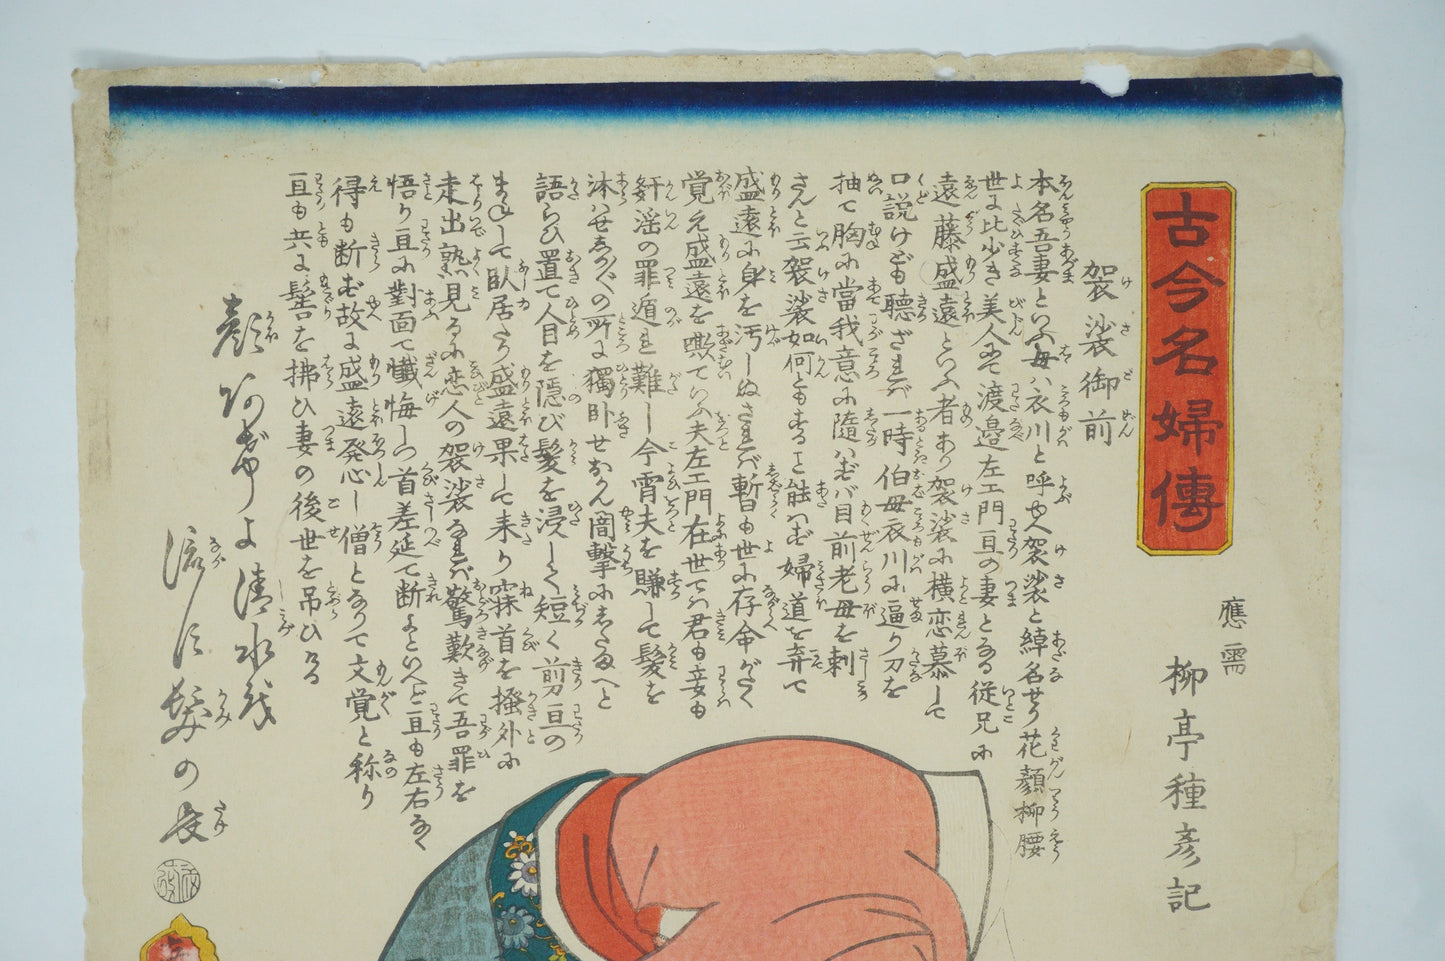 古今名婦傳
應需
柳亭種彦記
袈裟御前
本名吾妻といふ母ハ衣川と呼バ人袈裟と綽名せり花顔柳腰
世に比少き美人にて渡邉左エ門亘の妻となる従兄に
遠藤盛遠といふ者あり袈裟に横恋慕して
口説けども聴ざれバ一時伯母衣川に逼り刀を
抽て胸に當我意に隨はずバ目前老母を刺
さんと云袈裟如何ともすること能はず婦道を弃て
盛遠に身を汚しぬされバ暫も世に存命がたく
覚え盛遠を欺ていふ夫左エ門在世てハ君も妾も
奸淫の罪遁れ難し今霄夫を賺して髪を
沐はせ
の所に獨卧せおかん闇撃にしたまへと
語らひ置て人目を隠び髪を浸して短く前亘の
まねして臥居たり盛遠果して来り寐首を掻外に
走出熟見るに恋人の袈裟なれバ驚歎きて吾罪を
悟り亘に對面て懺悔しつ首差延て断よといへど亘も左右なく
得も断ず故に盛遠発心し僧となりて文覚と称り
亘も共に髻を拂ひ妻の後世を吊ひける
顔
よ清水
流す髪の長